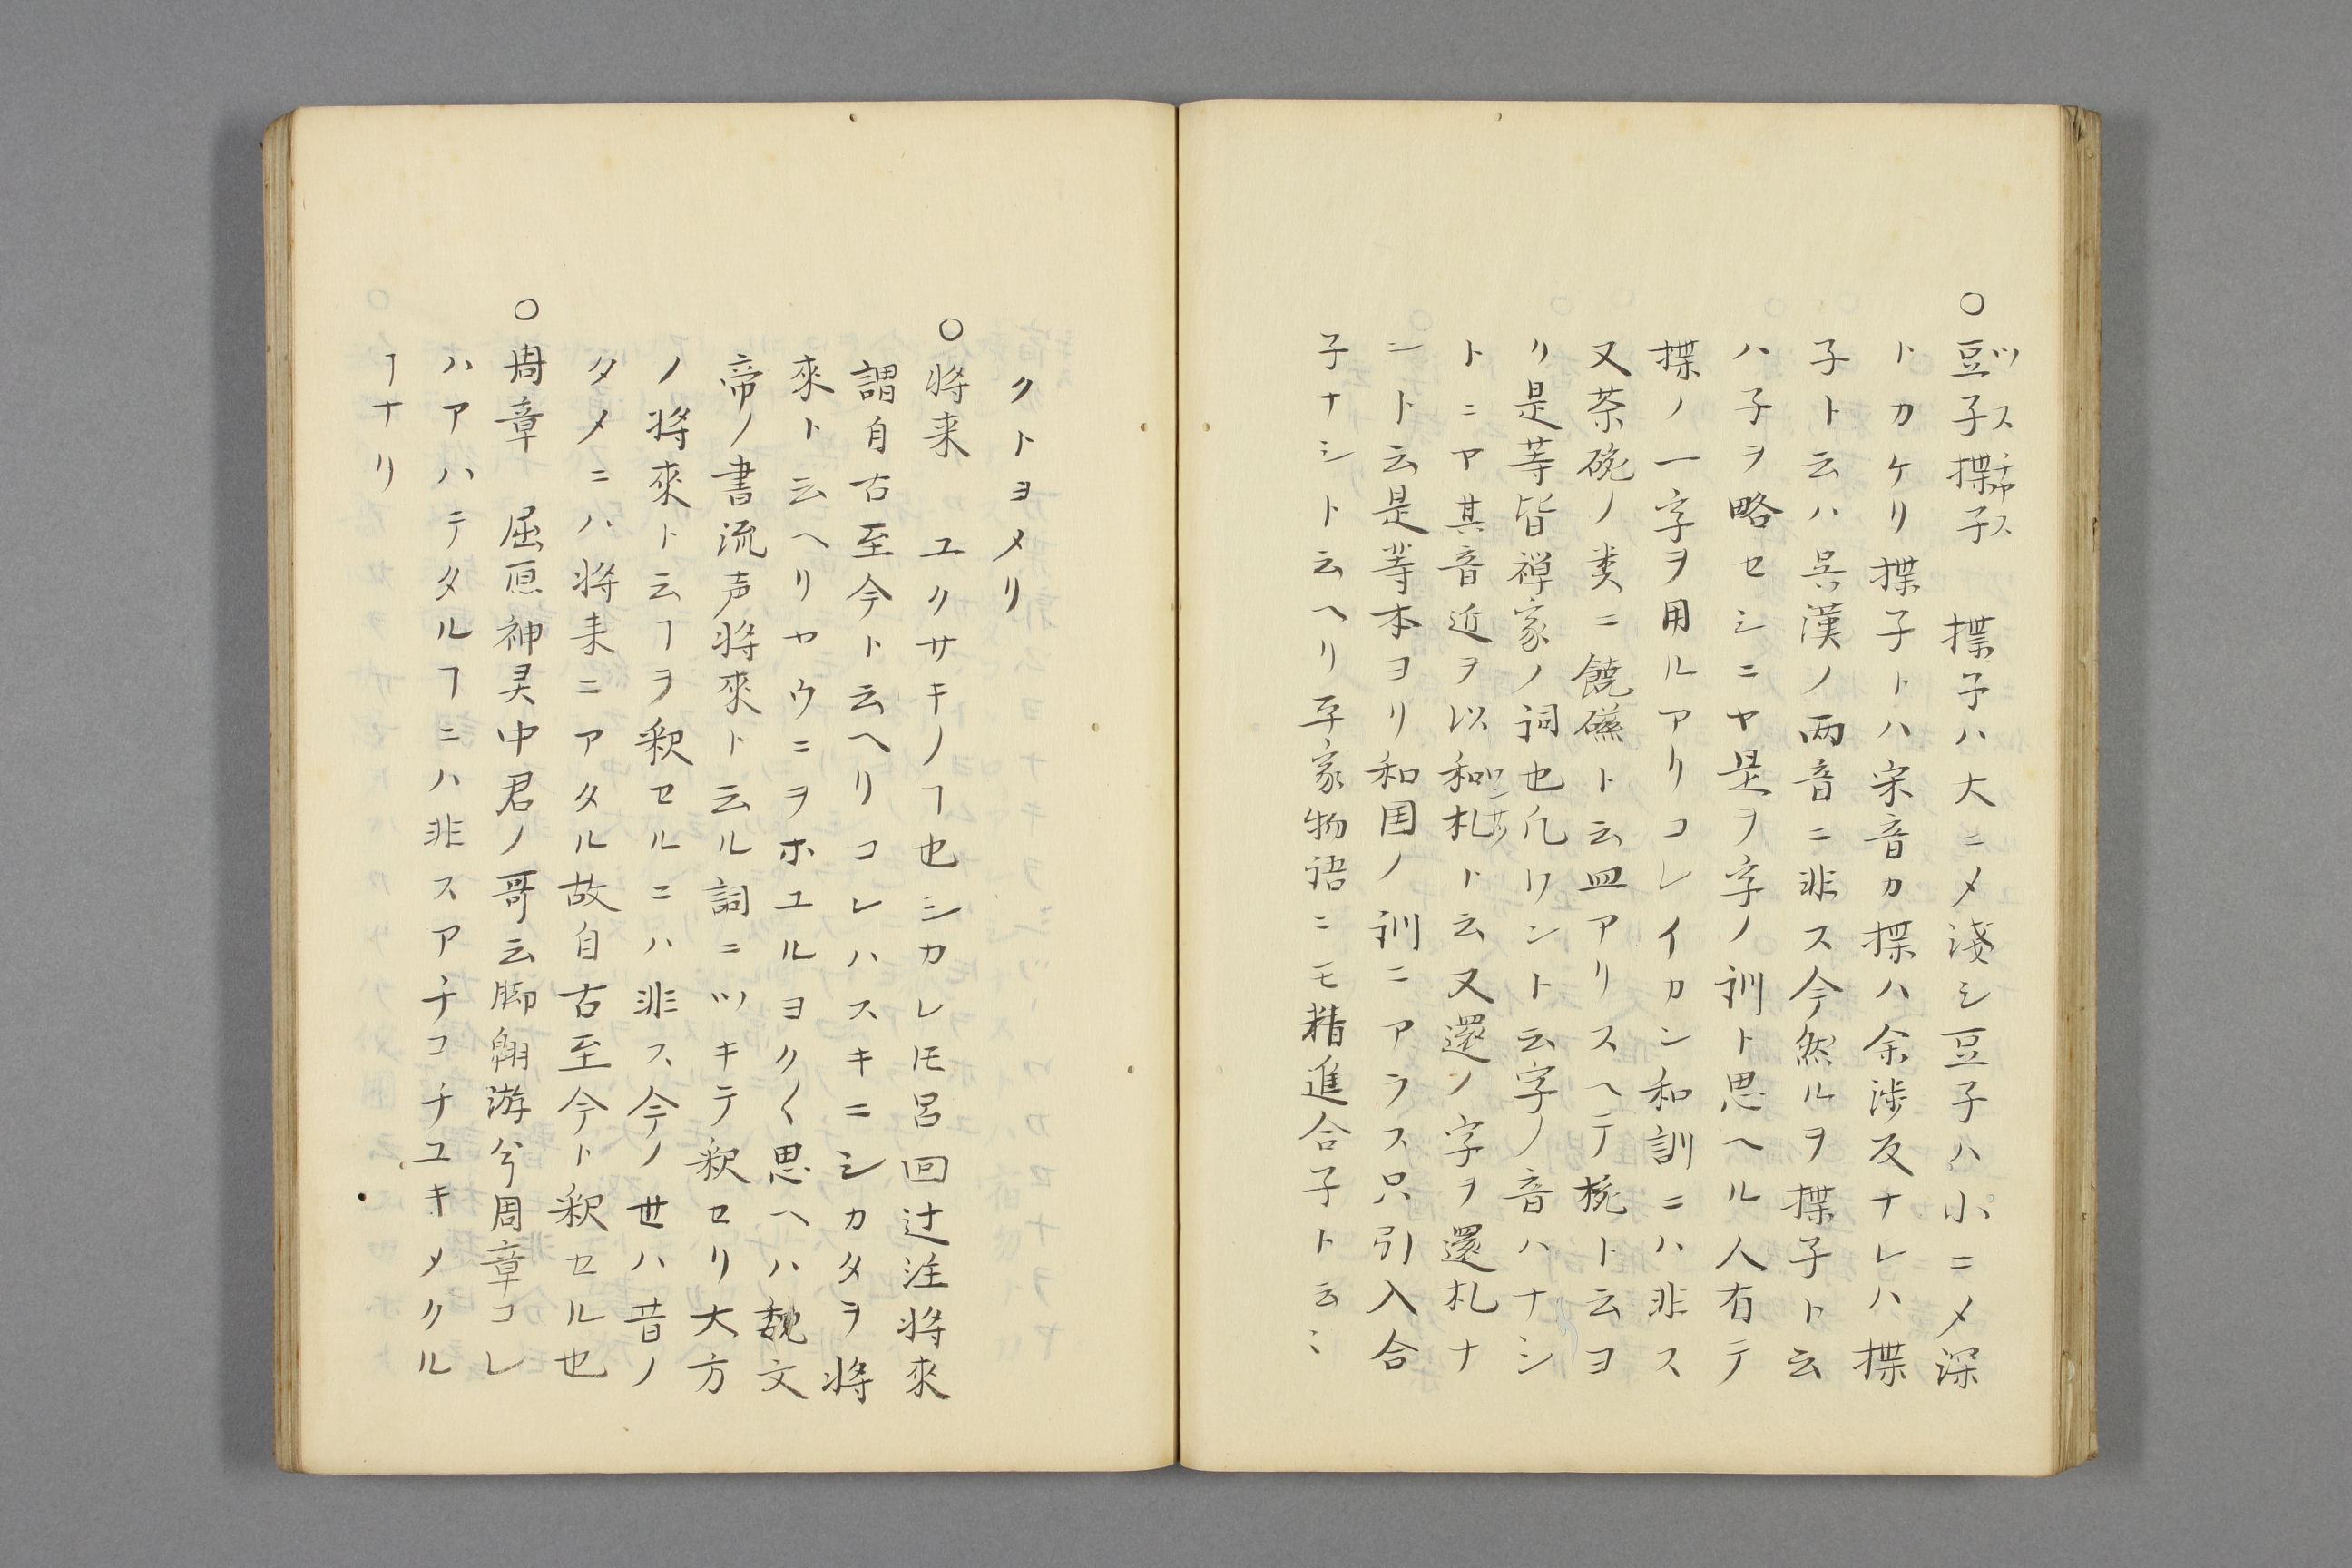 ○豆子楪子　楪子ハ大ニメ淺シ豆子ハ小ニメ深
ツス　チヤス
トカケリ楪子トハ宋音カ楪ハ余渉反ナレハ楪
子ト云ハ呉漢ノ両音ニ非ス今然ルヲ楪子ト云
ハ子ヲ略セシニヤ是ヲ字ノ訓ト思ヘル人有テ
楪ノ一字ヲ用ルアリコレイカン和訓ニハ非ス
又茶碗ノ类ニ饒礠ト云皿アリスヘテ椀ト云ヨ
リ是䓁皆禅家ノ詞也凢リント云字ノ音ハナシ
トニヤ其音近ヲ以和札ト云又還ノ字ヲ還札ナ
ント云是䓁本ヨリ和国ノ訓ニアラス只引入合
子ナシト云ヘリ平家物语ニモ精進合子ト云ミ
クトヨメリ
○将来　ユクサキノヿ也シカレ𪜈呂回辻注将來
謂自古至今ト云ヘリコレハスキニシカタヲ将
來ト云ヘリヤウニヲホユルヨク〱思ヘハ魏文
帝ノ書流声将來ト云ル詞ニツキテ釈セリ大方
ノ将來ト云ヿヲ釈セルニハ非ス今ノ世ハ昔ノ
タメニハ将来ニアタル故自古至今ト釈セル也
○周章　屈原神灵中君ノ哥云脚翱游兮周章コレ
ハアハテタルヿニハ非スアチコチユキメクル
ヿナリ